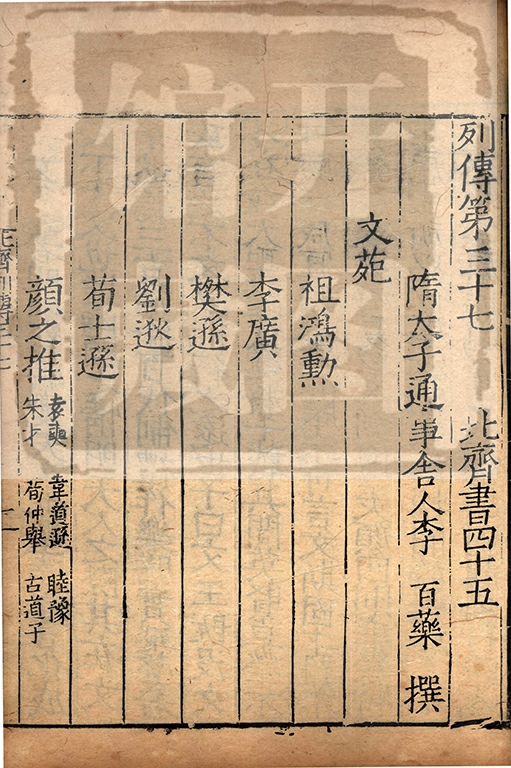 列傳第三十七 北齊書四十五
隋太子通事舍人李 百藥 撰
文苑
祖鴻勳
李廣
樊遜
劉逖
荀士遜
顏之推 袁奭 韋道遜 睦豫
朱才 荀仲舉 古道子
北齊列傳三十七 一